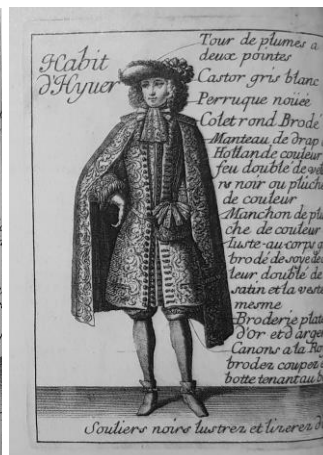 Habit
d'Hyuer
Tour de plumes a
deux pointes
Castor gris blanc
Perruque noüée
Colet rond Brodé
Manteau de drap
Hollande couleur
feu doublé de
rs noir ou pluche
de couleur
Manchon de plu
che de couleur
Iuste-au-corps
brodé de soye de
leur doublé de
satin et la veste
mesme
Broderie plate
d'or et d'argent
Canons a la Ro
brodez coupez
botte tenant au b
Souliers noirs lustrez et lizerez d